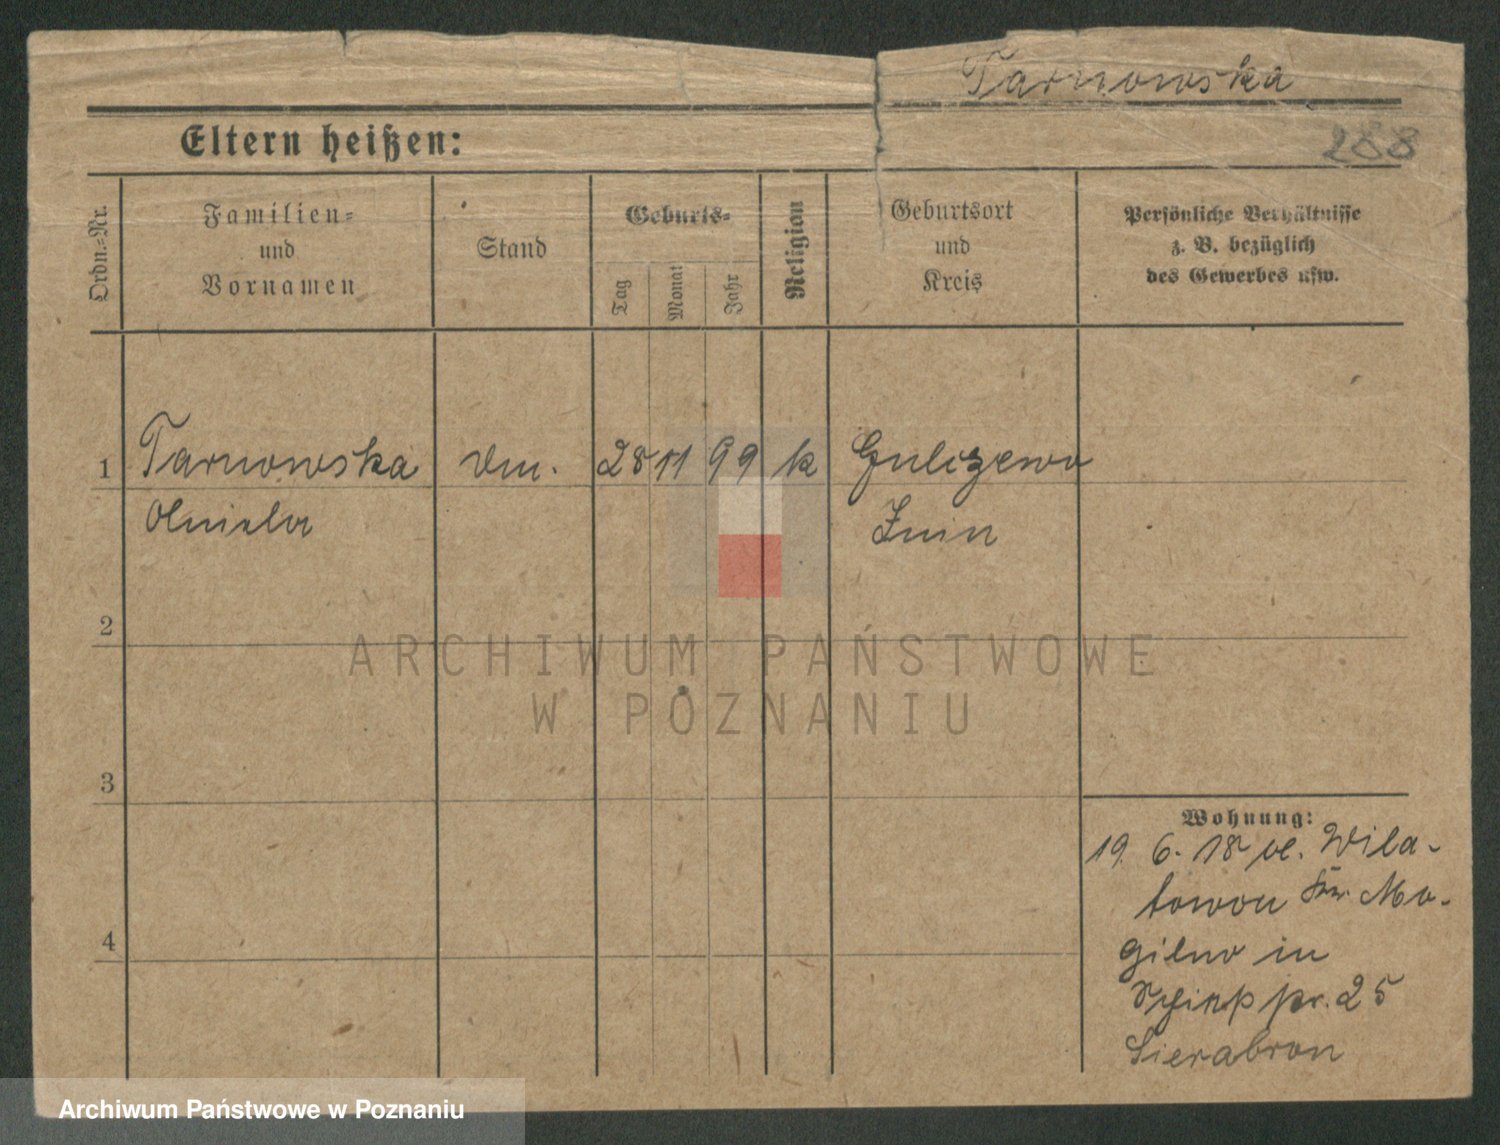 Tarnowska
288
Eltern heißen:
Ordn.-Nr.
Familien-
und
Vornamen
Stand
Geburts-
Tag
Monat
Jahr
Religion
Geburtsort
und
Kreis
Persönliche Verhältnisse
z. B. bezüglich
des Gewerbes usw.
1
Tarnowska
28 11 99 k
Gulczewo
Znin
2
3
4
Wohnung:
19. 6. 18 Wila-
towen Krs. Mo-
gilno in
25
ARCHIWUM PAŃSTWOWE
W POZNANIU
Archiwum Państwowe w Poznaniu